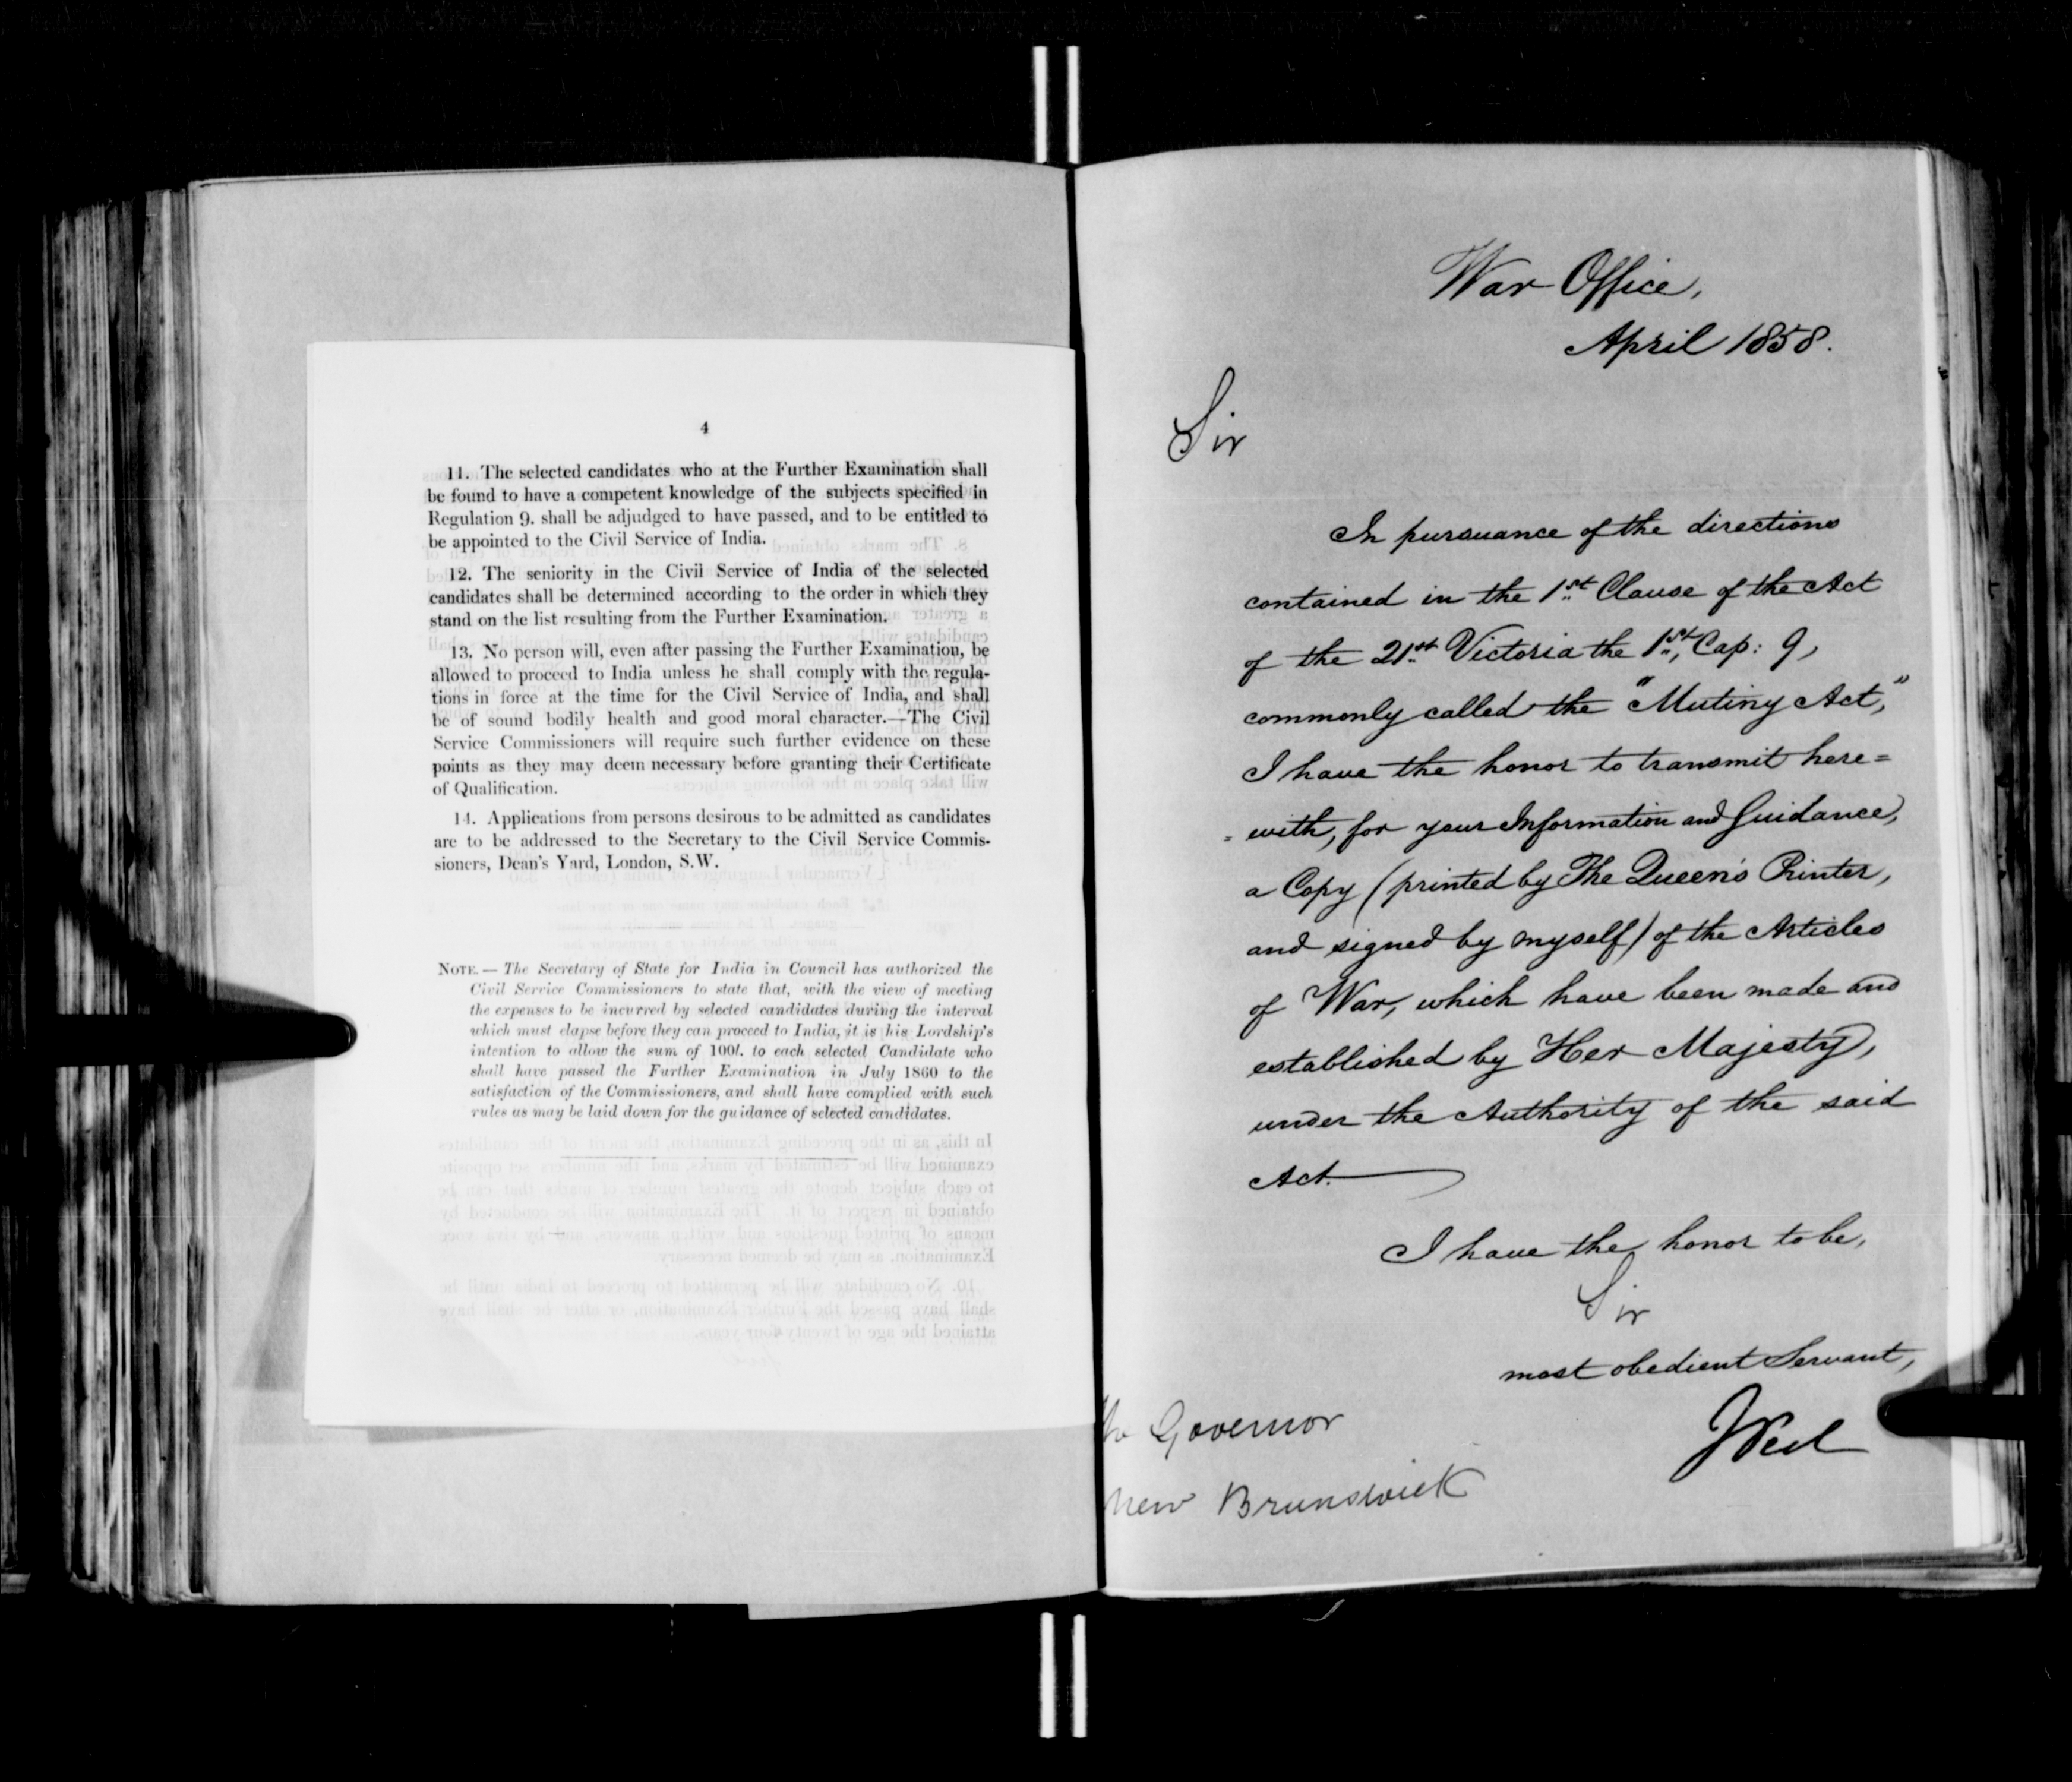 4
11. The selected candidates who at the Further Examination shall
be found to have a competent knowledge of the subjects specified in
Regulation 9. shall be adjudged to have passed, and to be entitled to
be appointed to the Civil Service of India.
12. The seniority in the Civil Service of India of the selected
candidates shall be determined according to the order in which they
stand on the list resulting from the Further Examination.
13. No person will, even after passing the Further Examination, be
allowed to proceed to India unless he shall comply with the regula-
tions in force at the time for the Civil Service of India, and shall
be of sound bodily health and good moral character.—The Civil
Service Commissioners will require such further evidence on these
points as they may deem necessary before granting their Certificate
of Qualification.
14. Applications from persons desirous to be admitted as candidates
are to be addressed to the Secretary to the Civil Service Commis-
sioners, Dean's Yard, London, S.W.
NOTE.— The Secretary of State for India in Council has authorized the
Civil Service Commissioners to state that, with the view of meeting
the expenses to be incurred by selected candidates during the interval
which must elapse before they can proceed to India, it is his Lordship's
intention to allow the sum of 100l. to each selected Candidate who
shall have passed the Further Examination in July 1860 to the
satisfaction of the Commissioners, and shall have complied with such
rules as may be laid down for the guidance of selected candidates.
War Office,
April 1858.
Sir
In pursuance of the directions
contained in the 1st Clause of the Act
of the 21st Victoria the 1st, Cap: 9,
commonly called the "Mutiny Act,"
I have the honor to transmit here=
=with, for your Information and Guidance,
a Copy (printed by The Queen's Printer,
and signed by myself) of the Articles
of War, which have been made and
established by Her Majesty,
under the Authority of the said
Act.
I have the honor to be,
Sir
most obedient Servant,
JPeel
Governor
New Brunswick